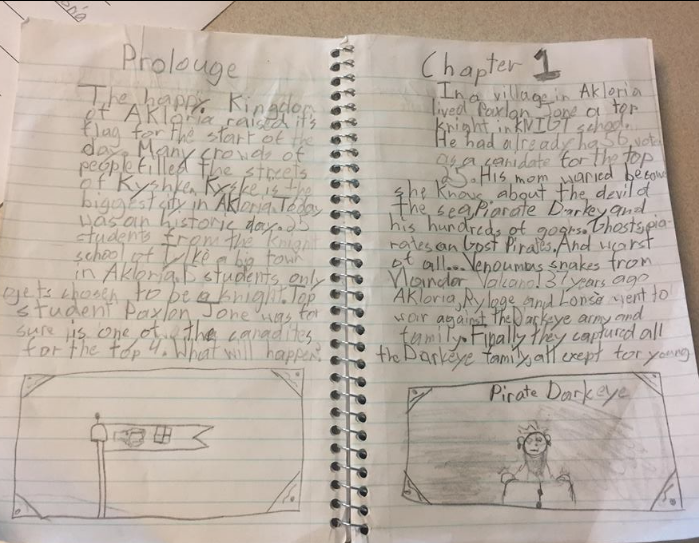 Prolouge
The happy Kingdom
of Akloria raised it's
flag for the start of the
day. Many crowds of
people filled the streets
of Kyshke. Kyske is the
biggest city in Akloria. Today
was an historic day. 25
students from the knight
school of a big town
in Akloria. students only
gets chosen to be a knight. Top
student Paxlon Jone was for
sure is one of the canadites
for the top 4. What will happen?
Chapter 1
In a village in Akloria
lived Paxlon Jone a top
knight in KNIGT school.
He had already has 6 vote
as a canidate for the top
25. His mom waried becaus
she know about the devil of
the sea, Piarate Darkey and
his hundreds of Ghosts, pia-
rates an Gost Pirates. And worst
of all... Venoumas snakes from
Volcano! 37 years ago
Akloria, Ryloge and Lonso went to
war against the Darkeye army and
family. Finally they captured all
the Darkeye family, all exept for young
Pirate Darkeye